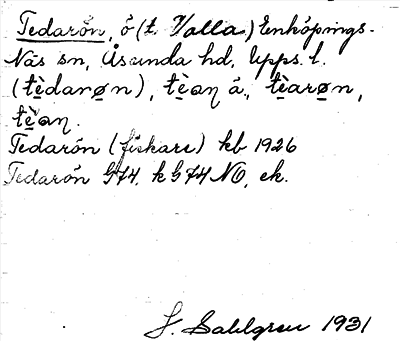 Tedarön, ö (t. Valla) Enköpings-
Näs sn, Åsunda hd, Upps. l.
(tèdarøn), tèaŋ å, tèarøn,
tèaŋ.
Tedarön (fiskare) kb 1926
Tedarön G74, k G74 NO, ek.
J. Sahlgren 1931